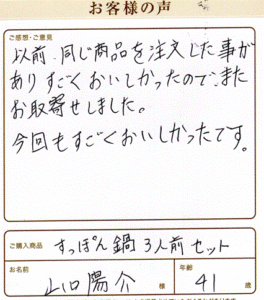 お客様の声
ご感想・ご意見
以前、同じ商品を注文した事が
ありすごくおいしかったので、また
お取寄せしました。
今回もすごくおいしかったです。
ご購入商品 すっぽん鍋3人前セット
お名前 山口陽介 様 年齢 41 歳